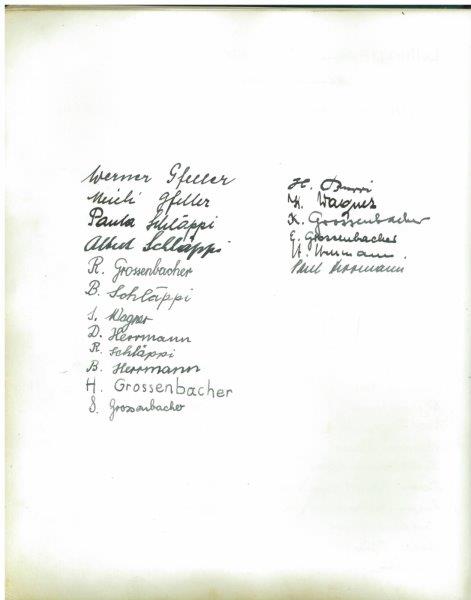 Werner Gfeller
Meieli Gfeller
Paula Schläppi
Albert Schläppi
R. Grossenbacher
B. Schläppi
S. Wagner
D. Herrmann
R. Schläppi
B. Herrmann
H. Grossenbacher
S. Grossenbacher
H. Burri
K. Wagner
K. Grossenbacher
E. Grossenbacher
Paul Herrmann